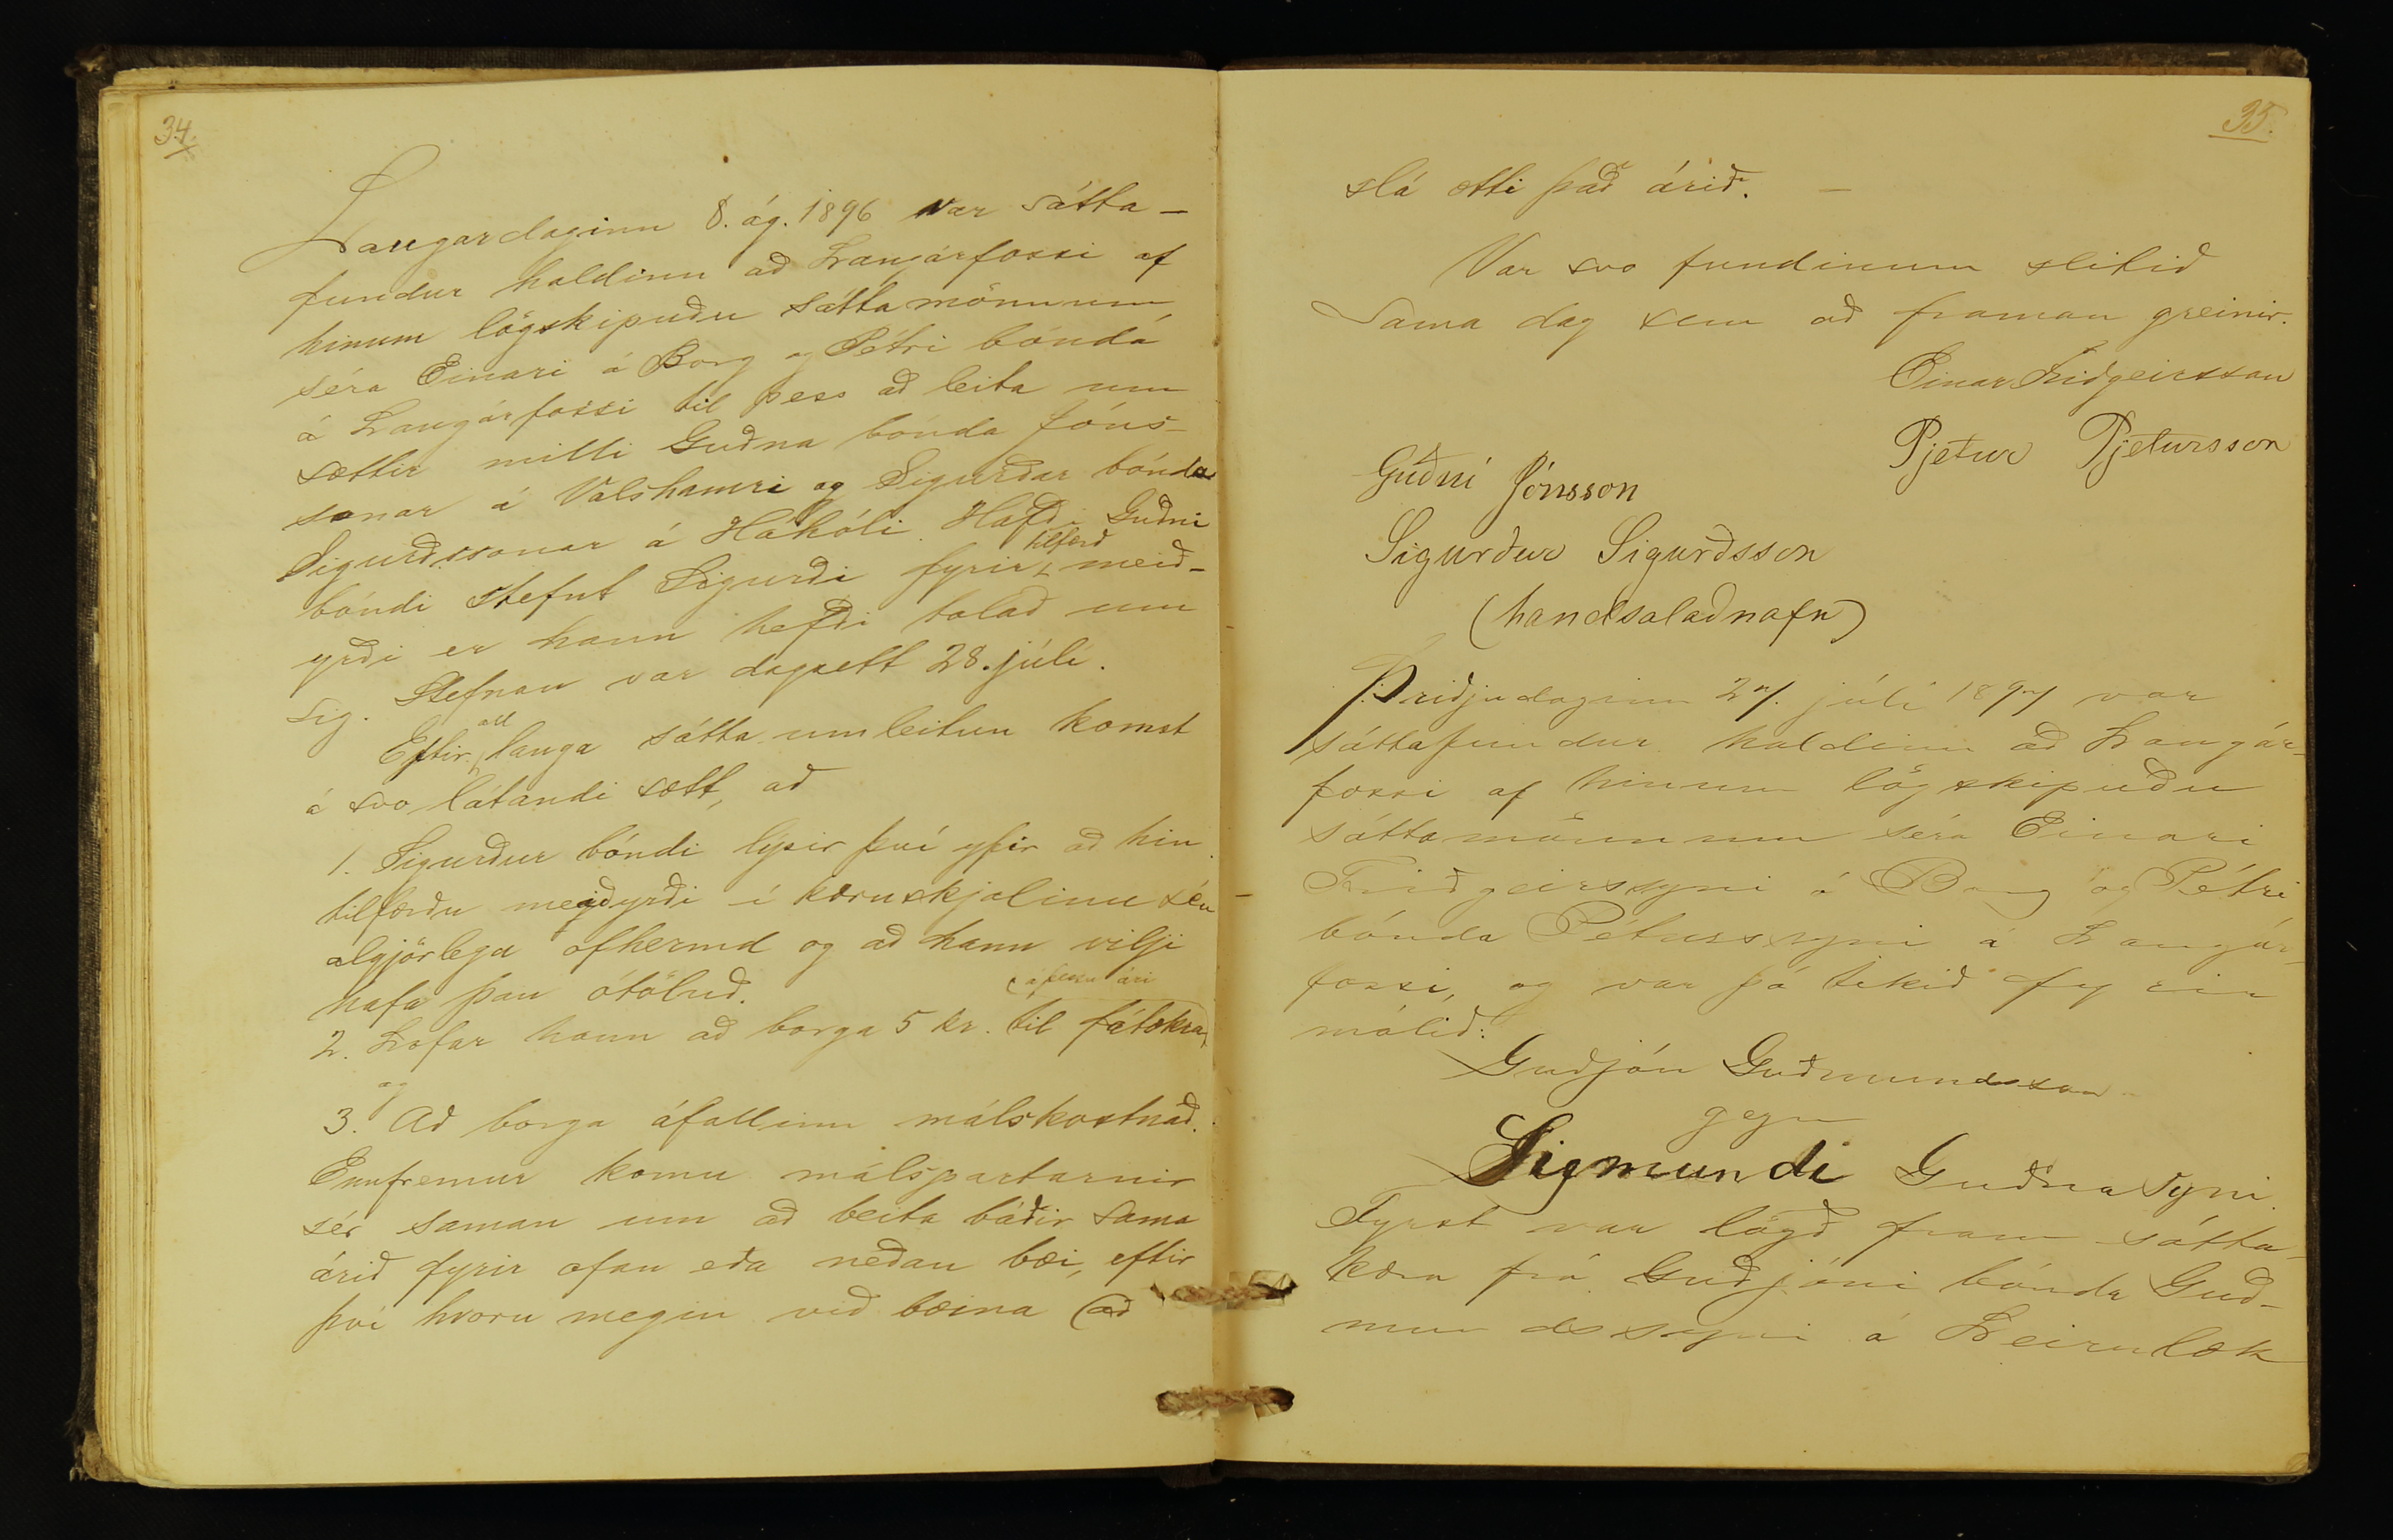 34.
Laugardaginn 8. ág. 1896 var sátta-
fundur haldinn að Langárfossi af
hinum lögskipuðu sáttamönnum,
séra Einari á Borg og Pétri bónda
á Langárfossi til þess að leita um
sættir milli Guðna bónda Jóns-
sonar á Valshamri og Sigurðar bónda
Sigurðssonar á Háhóli. Hafði Guðni
bóndi stefnt Sigurði fyrir tilfærð meið-
yrði er hann hefði talað um
sig. Stefnan var dagsett 28. júlí.
Eftir all langa sátta umleitun komst
á svo látandi sætt, að
1. Sigurður bóndi lýsir því yfir að hin
tilfærðu meiðyrði í kæruskjalinu séu
algjörlega ofhermd og að hann vilji
hafa þau ótöluð.
(á þessu ári
2. Lofar hann að borga 5 kr. til fátækra,
og
3. Að borga áfallinn málskostnað.
Ennfremur komu málspartarnir
sér saman um að beita báðir sama
árið fyrir ofan eða neðan bæi, eftir
því hvoru megin við bæina (að
35.
slá ætti það árið. —
Var svo fundinum slitið
Sama dag sem að framan greinir.
Einar Friðgeirsson
Pjetur Pjetursson
Guðni Jónsson
Sigurður Sigurðsson
(handsalað nafn)
Þriðjudaginn 27. júlí 1897 var
sáttafundur haldinn að Langár-
fossi af hinum lögskipuðu
sáttamönnum séra Einari
Friðgeirssyni á Borg og Pétri
bónda Péturssyni á Langár-
fossi, og var þá tekið fyrir
málið:
Guðjón Guðmundsson
gegn
Sigmundi Guðnasyni.
Fyrst var lögð fram sátta-
kæra frá Guðjóni bónda Guð-
mundssyni á Leirulæk